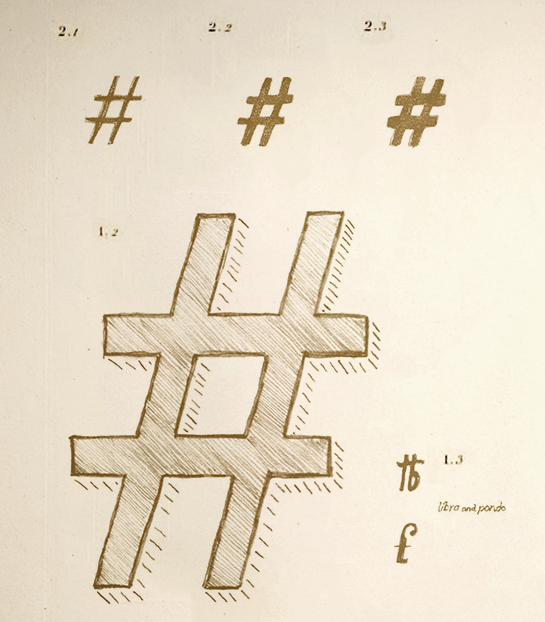 2.1 2.2 2.3
# # #
1.2
#
℔ 1.3
libra and pondo
£